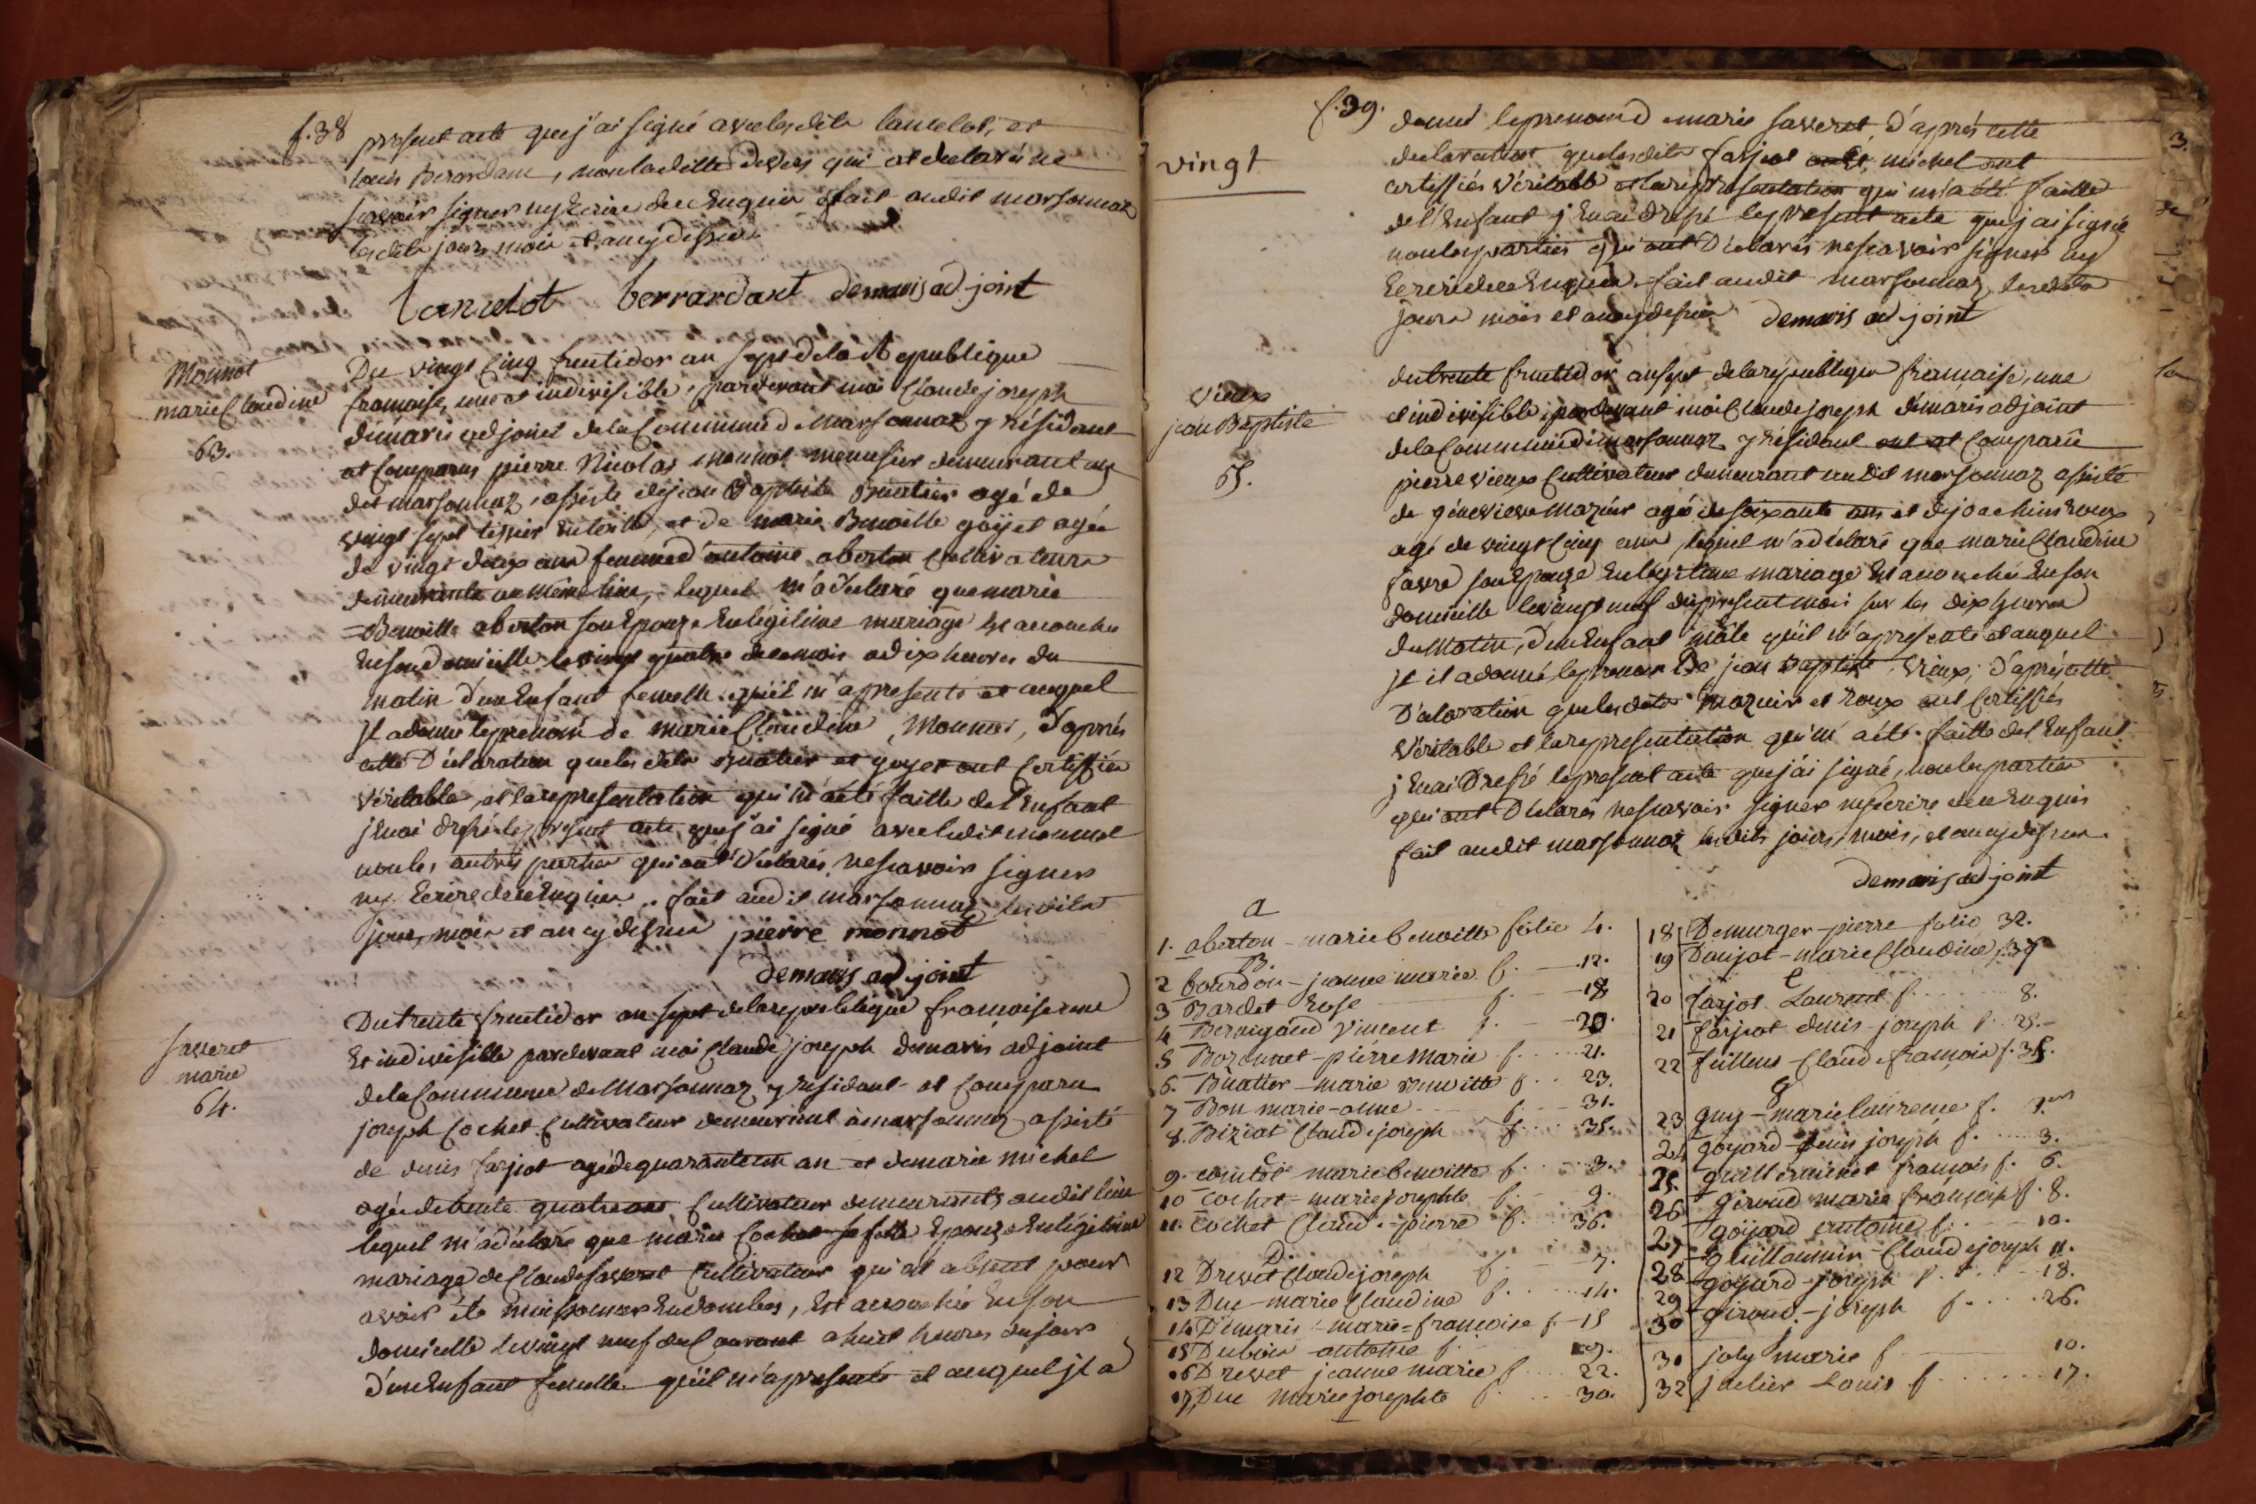 f. 38
present acte que j'ai signé avec lesdits lancelot, et
louis Berardant, non laditte devers qui at declaré ne
scavoir signer ny Ecrire de ce Enquis fait audit marsonnaz
lesdits jours mois et an cy dessus
lancelot berrardant demaris ad-joint
Monnot
marie Claudine
63.
Du vingt Cinq fructidor an sept de la Republique
francoise, une et indivisible, pardevant moi Claude joseph
démaris adjoint de la Commune de Marsonnaz y résidant
at Comparus pierre Nicolas monnot menusier demeurant au
dit marsonnaz, assisté de jean Baptiste Buatier agé de
vingt sept tissier en toille, et de marie Benoitte goyet agée
de vingt deux ans femme d'antoine aberton Cultivateurs
demeurants au même lieu, lequel m'a déclaré que marie
Benoitte aberton son Epouze En légitime mariage Est accouchée
En son domicille le vingt quatre de ce mois a dix heures du
matin d'un Enfant femelle qu'il m'a presenté et auquel
Il a donné le prenom de marie Claudine Monnot, d'après
cette Déclaration que lesdits Buatier et goyet ont Certiffiés
Véritable, et la representation qui m'a été faitte de l'Enfant
j'En ai dréssé le présent acte que j'ai signé avec ledit monnot
non les autres parties qui ont Déclarés ne scavoir signer
ny Ecrire de ce Enquis. fait audit marsonnaz lesdits
jours, mois et an cy dessus pierre monnot
demaris ad-joint
saveret
marie
64.
Du trente fructidor an sept de la republique francoise une
Et indivisible pardevant moi Claude joseph démaris adjoint
de la Commune de Marsonnaz y résidant at Comparu
joseph Cochet Cultivateur demeurant à marsonnaz assisté
de denis farjiot agé de quarante un an et de marie michel
agée de trente quatre ans Cultivateur demeurants audit lieu
lequel m'a déclaré que marie Cochet sa fille Epouze En légitime
mariage de Claude saveret Cultivateur qui est absent pour
avoir été moissonner En dombes, Est accouchée En son
domicille le vingt neuf du Courant a huit heures du soir
d'un Enfant femelle qu'il m'a presenté et auquel il a
f. 39.
vingt
donné le prenom de marie saveret, d'après cette
declaration que lesdits farjiot et michel ont
certiffiés Véritable et la representation qui m'a été faitte
de l'Enfant j'En ai dressé le present acte que j'ai signé
non les parties qui ont Déclarés ne scavoir signer ny
Ecrire de ce Enquis. fait audit marsonnaz lesdits
jours mois et an cy dessus demaris ad-joint
Vieux
jean Baptiste
65.
du trente fructidor an sept de la république francaise, une
et indivisible, pardevant moi Claude joseph démaris adjoint
de la Commune de marsonnaz y résidant at Comparu
pierre vieux Cultivateur demeurant audit marsonnaz assisté
de génevieve mazuir agée de soixante ans et de joachim roux
agé de vingt Cinq ans, lequel m'a déclaré que marie Claudine
favre son Epouze En légitime mariage Est accouchée En son
domicille le vingt neuf du present mois sur les dix heures
du matin, d'un Enfant mâle qu'il m'a presenté et auquel
Il a donné le prenom de jean Baptiste Vieux, d'après cette
Déclaration que lesdits mazuir et roux ont Certiffiés
Véritable et la representation qui m'a été faitte de l'Enfant
j'En ai Dressé le present acte que j'ai signé, non les parties
qui ont Déclarés ne scavoir signer ny Ecrire de ce Enquis
fait audit marsonnaz lesdits jours, mois, et an cy dessus
demaris ad-joint
a
1. aberton - marie benoitte folio 4.
B
2 bourdon - jeanne marie f. 12.
3 Bardet Rose f. 18
4 Bernigaud Vincent f. 20.
5 Boronnet - pierre Marie f. 21.
6. Buatier - marie Benoitte f. 23.
7 Bon marie - anne f. 31.
8. Biziat Claude joseph f. 35.
C
9. marie benoitte f. 3.
10 Cochet - marie josephte f. 9.
11. Cochet Claude - pierre f. 36.
D.
12 Drevet Claude joseph f. 7.
13 Duc - marie Claudine f. 14.
14 Démaris - marie - francoise f. 15
15 Dubois antoine f. 19.
16 Drevet jeanne marie f. 22.
17, Duc marie josephte f. 30.
18 Demurger - pierre folio 32.
19 Danjat - marie Claudine f. 37
f
20 farjot Laurent f. 8.
21 farjiot denis - joseph f. 25.
22 feillens Claude francois f. 35.
g
23 guy - marie laurence f. 1er
24 goyard denis joseph f. 3.
25. francois f. 6.
26 giroud marie francoise f. 8.
27 goyard antoine f. 10.
28 guillaumin - Claude joseph 11.
29 goyard - joseph f. 18.
30 giroud. - joseph f. 26.
j
31 joly marie f 10.
32 jaclier Louis f 17.